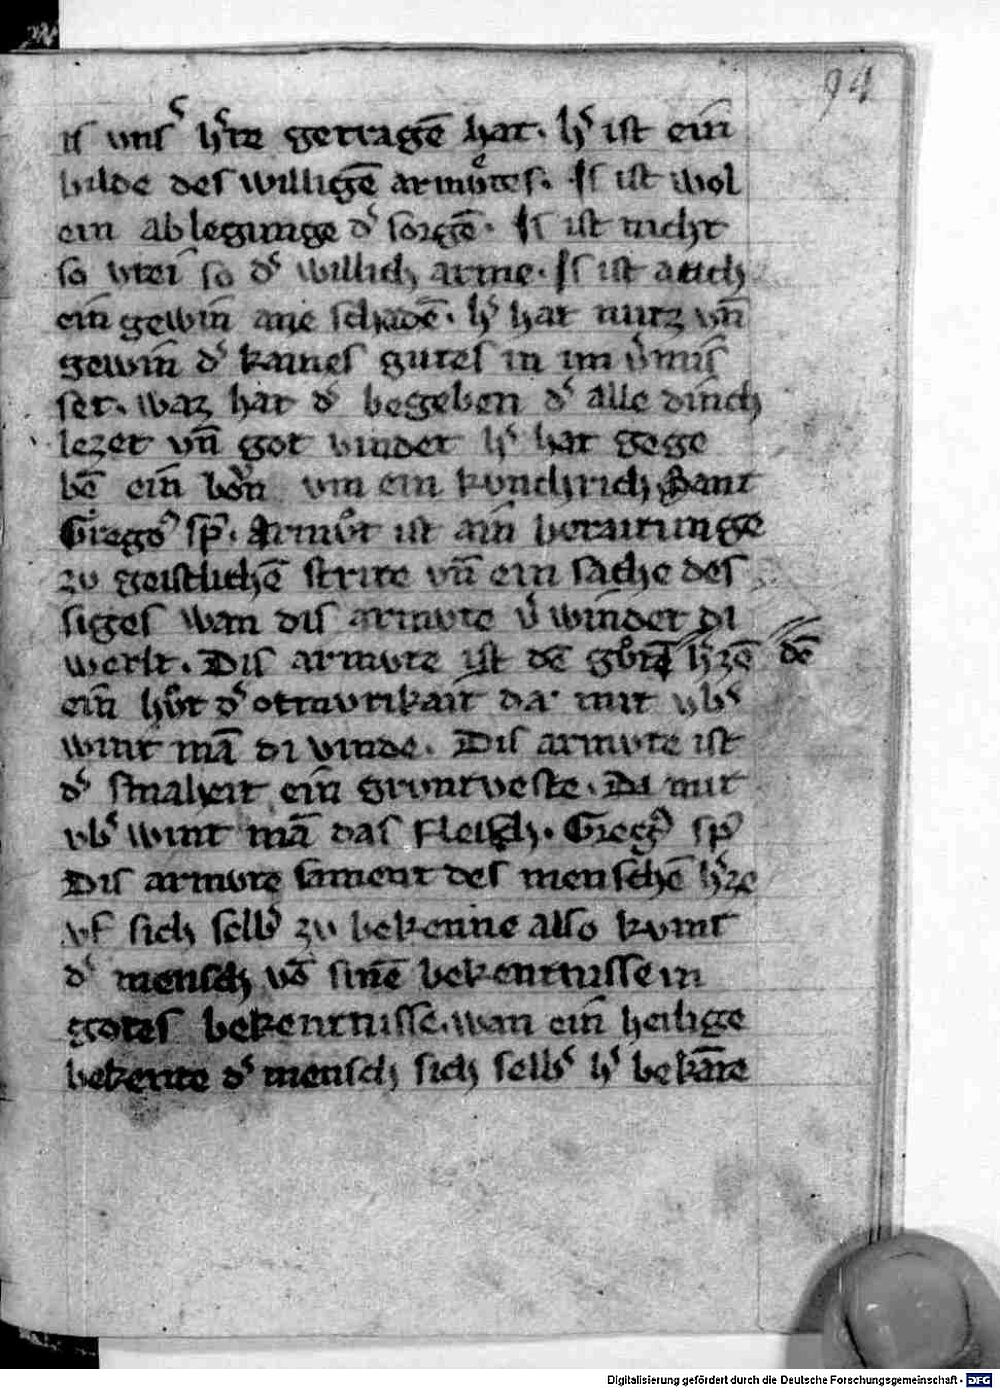 94
is vnsˀ hˀre getragē hat. hˀ ist ein
bilde des willigē armuͦtes. Is ist wol
ein ablegunge dˀ sorgē. Is ist nicht
so vrei so dˀ willich arme. Is ist auch
ein gewin ane schadē. hˀ hat nutz vn̄
gewin dˀ kaines gutes in im vˀmis
set. waz hat dˀ begeben dˀ alle dinch
lezet vn̄ got vindet hˀ hat gege
bē ein bon vm ein kvnchrich Sant
Gregoˀ sp̄. Armvt ist ain beraitunge
zv geistlichē strite vn̄ ein sache des
siges wan dis armvte vˀwindet di
werlt. Dis armvte ist dē hˀzē dē
ein hvt dˀ otmvtikait da mit vbˀ
wint mā di vinde. Dis armvte ist
dˀ smaheit ein grvntveste. Da mit
vbˀ wint mā das fleisch. Gregˀ sp̄
Dis armvte sament des menschē hˀze
vf sich selbˀ zv bekenne also kvmt
dˀ mensch vō sinē bekentnisse in
gotes bekentnisse. wan ein heilige
bekente dˀ mensch sich selbˀ hˀ bekāte
Digitalisierung gefördert durch die Deutsche Forschungsgemeinschaft - DFG